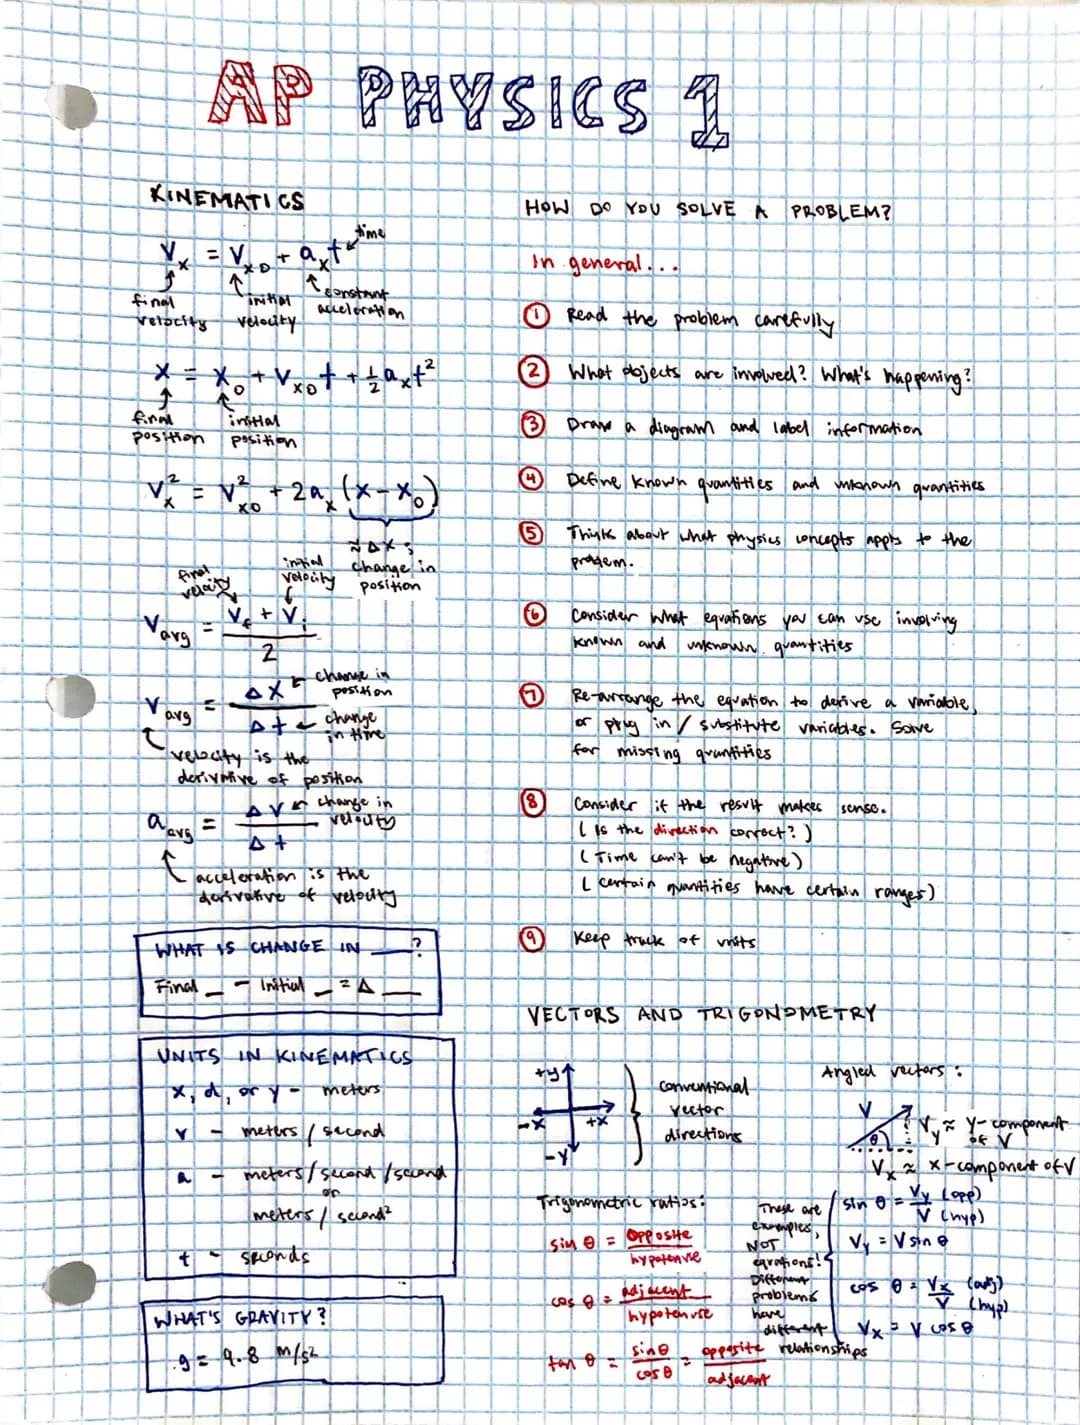 AP PHYSICS 1
KINEMATICS
Vx = Vx0 + axt
time
final velocity
initial velocity
constant acceleration
x = x0 + Vx0t + ½axt²
final position
initial position
Vx² = Vx0² + 2ax(x-x0)
≈ Δx; change in position
final velocity
initial velocity
Vavg = Vf + Vi / 2
Vavg = Δx / Δt
change in position
change in time
velocity is the
derivative of position
aavg = Δv / Δt
change in velocity
acceleration is the
derivative of velocity
WHAT IS CHANGE IN ___?
Final _ - Initial _ = Δ ___
UNITS IN KINEMATICS
x, d, or y - meters
v - meters / second
a - meters / second / second
or
meters / second²
t - seconds
WHAT'S GRAVITY?
g = 9.8 m/s²
HOW DO YOU SOLVE A PROBLEM?
in general...
1 Read the problem carefully
2 What objects are involved? What's happening?
3 Draw a diagram and label information
4 Define known quantities and unknown quantities
5 Think about what physics concepts apply to the
problem.
6 Consider what equations you can use involving
known and unknown quantities
7 Re-arrange the equation to derive a variable,
or plug in / substitute variables. Solve
for missing quantities
8 Consider if the result makes sense.
(Is the direction correct?)
(Time can't be negative)
(certain quantities have certain ranges)
9 Keep track of units
VECTORS AND TRIGONOMETRY
+y
-x
+x
-y
conventional
vector
directions
Angled vectors:
V
θ
Vy ≈ y-component
of V
Vx ≈ x-component of V
Trigonometric ratios:
sin θ = opposite / hypotenuse
cos θ = adjacent / hypotenuse
tan θ = sin θ / cos θ = opposite / adjacent
These are
examples,
NOT
equations!
Different
problems
have
different
relationships
sin θ = Vy (opp) / V (hyp)
Vy = V sin θ
cos θ = Vx (adj) / V (hyp)
Vx = V cos θ